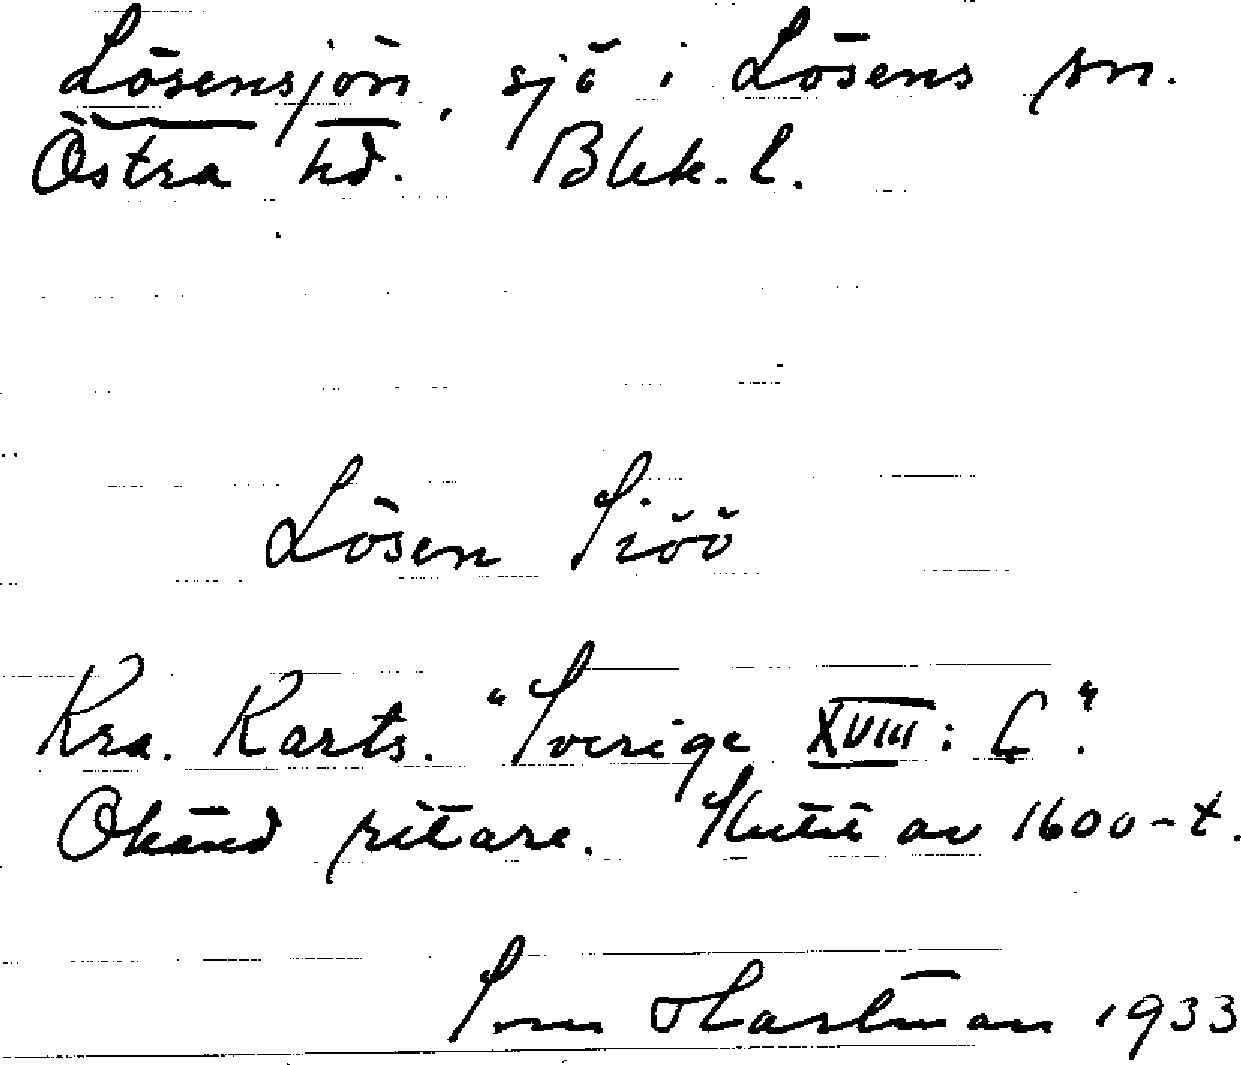 Lösensjön, sjö i Lösens sn.
Östra hd. Blek. l.
Lösen Siöö
Kra. Karts. "Sverige XVIII: C".
Okänd ritare. Slutet av 1600-t.
Sven Hartman 1933